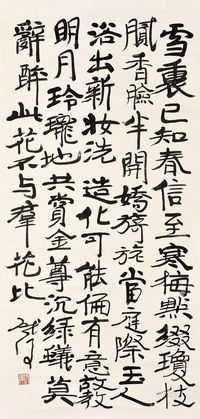 雪裏已知春信至寒梅點綴瓊枝
膩香臉半開嬌旖旎當庭際玉人
浴出新妝洗 造化可能偏有意故教
明月玲瓏地共賞金尊沉綠蟻莫
辭醉此花不与羣花比